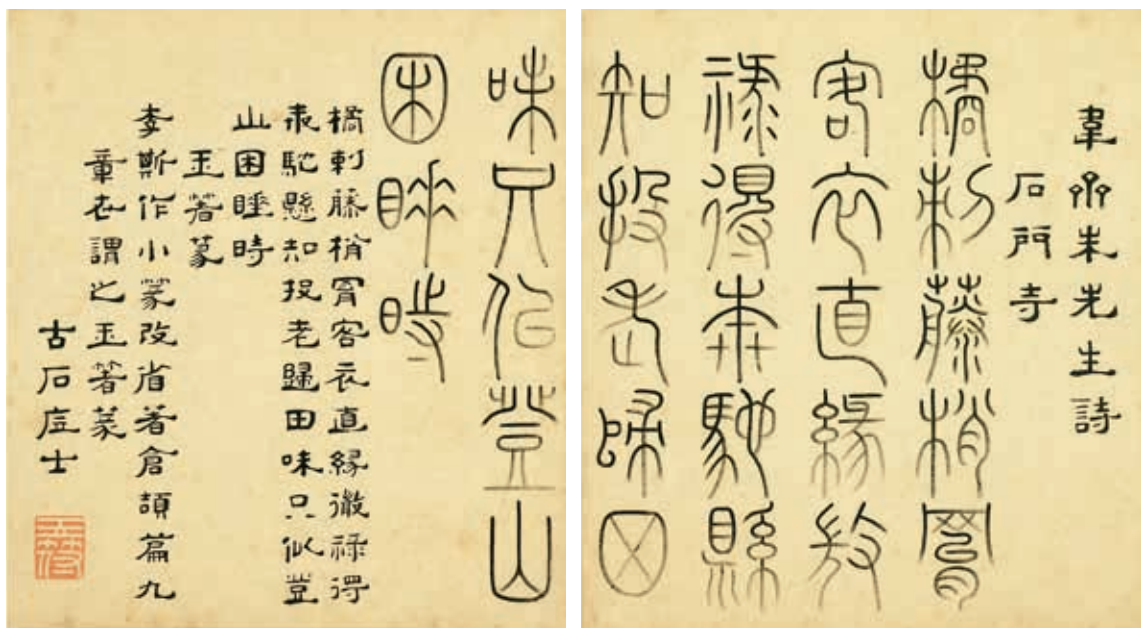 韋亝朱先生詩
石門寺
橘刺藤梢罥
客衣直緣徼
祿得奔馳縣
知投老歸田
味只佀登山
困睡時
橘刺藤梢罥客衣直緣徼祿得
奔馳懸知投老歸田味只似登
山困睡時
玉箸篆
李斯作小篆改省著倉頡篇九
章世謂之玉箸篆
古石士